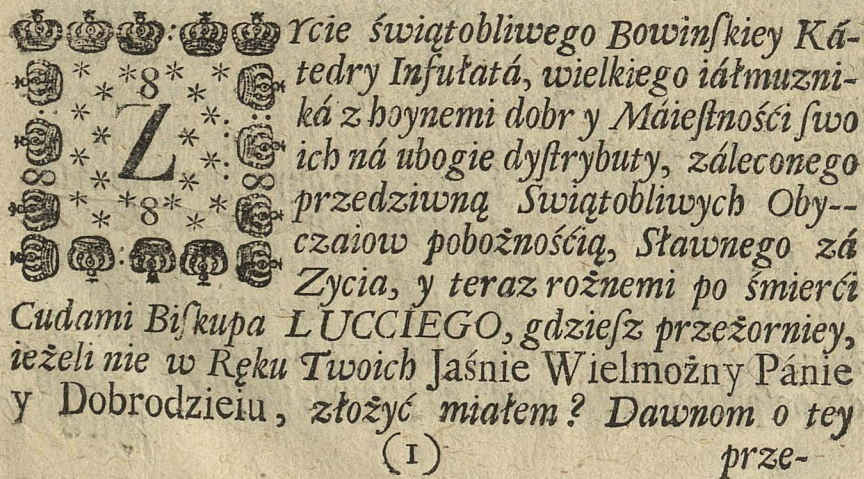 ZYcie świątobliwego Bowinſkiey Ká-
tedry Infułatá, wielkiego iáłmuzni-
ká z hoynemi dobr y Máieſtnośći ſwo
ich ná ubogie dyſtrybuty, záleconego
przedziwną Swiątobliwych Oby--
czaiow pobożnośćią, Sławnego zá
Zycia, y teraz rożnemi po śmierći
Cudami Biſkupa LUCCIEGO, gdzieſz przeżorniey,
ieżeli nie w Ręku Twoich Jaśnie Wielmożny Pánie
y Dobrodzieiu, złożyć miałem? Dawnom o tey
(1)
prze-